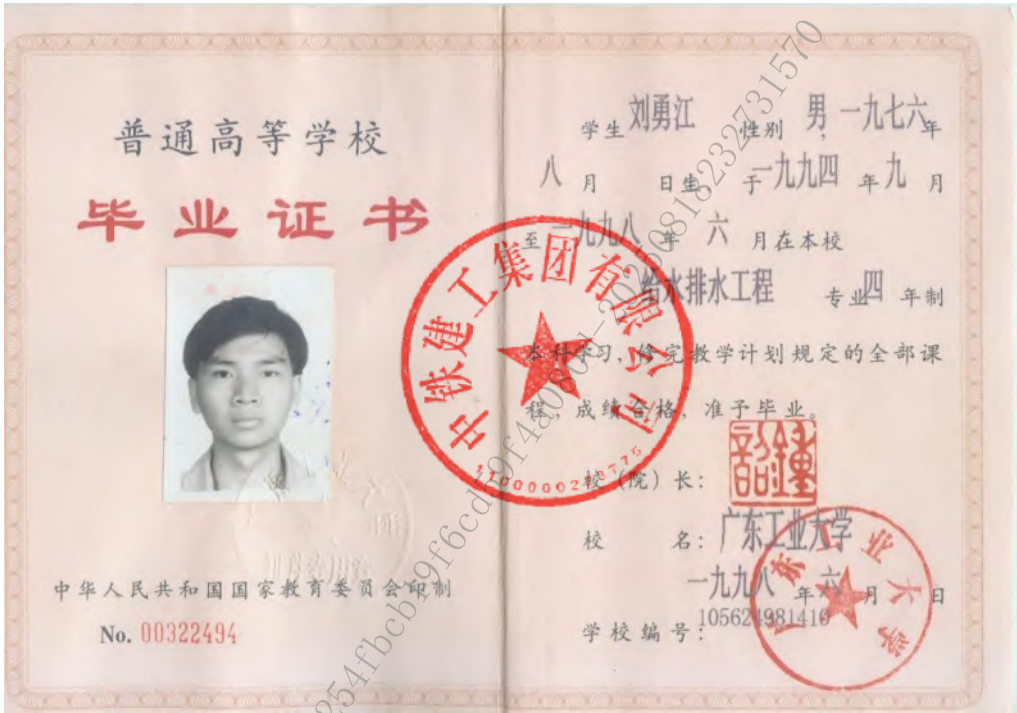 普通高等学校
毕业证书
中华人民共和国国家教育委员会印制
No. 00322494
学生 刘勇江 性别 男, 一九七六年
八月 日生 于一九九四年九月
至一九九八年六月在本校
给水排水工程 专业四年制
本科学习,修完教学计划规定的全部课
程,成绩合格,准予毕业。
校(院)长:
校 名: 广东工业大学
一九九八年六月 日
学校编号: 105624981410
中铁建工集团有限公司
广东工业大学